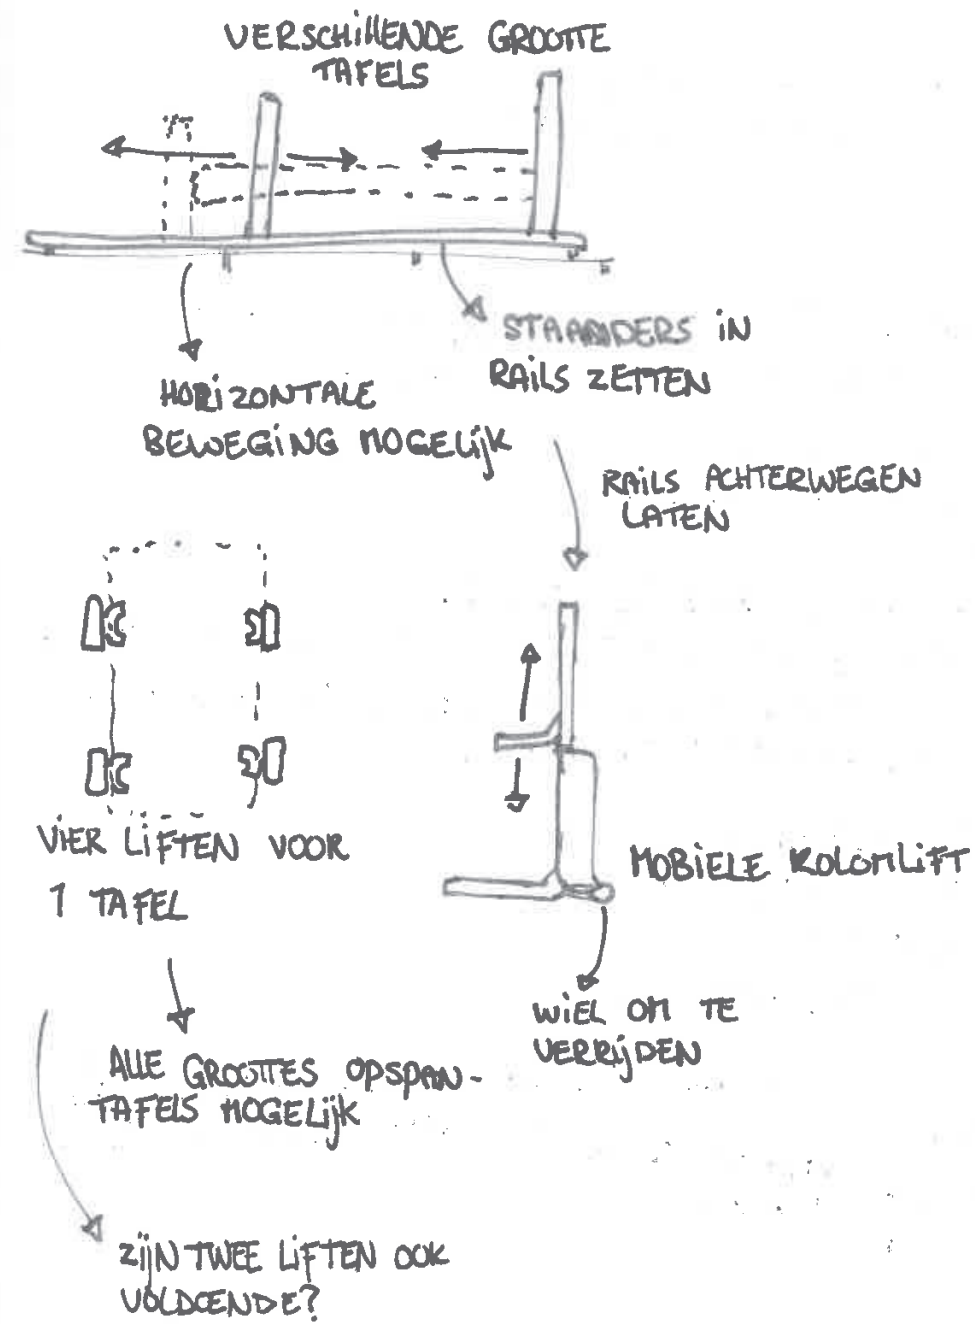 VERSCHILLENDE GROOTTE
TAFELS
STAANDERS IN
RAILS ZETTEN
HORIZONTALE
BEWEGING MOGELIJK
RAILS ACHTERWEGEN
LATEN
VIER LIFTEN VOOR
1 TAFEL
MOBIELE KOLOMLIFT
WIEL OM TE
VERRIJDEN
ALLE GROOTTES OPSPAN-
TAFELS MOGELIJK
ZIJN TWEE LIFTEN OOK
VOLDOENDE?